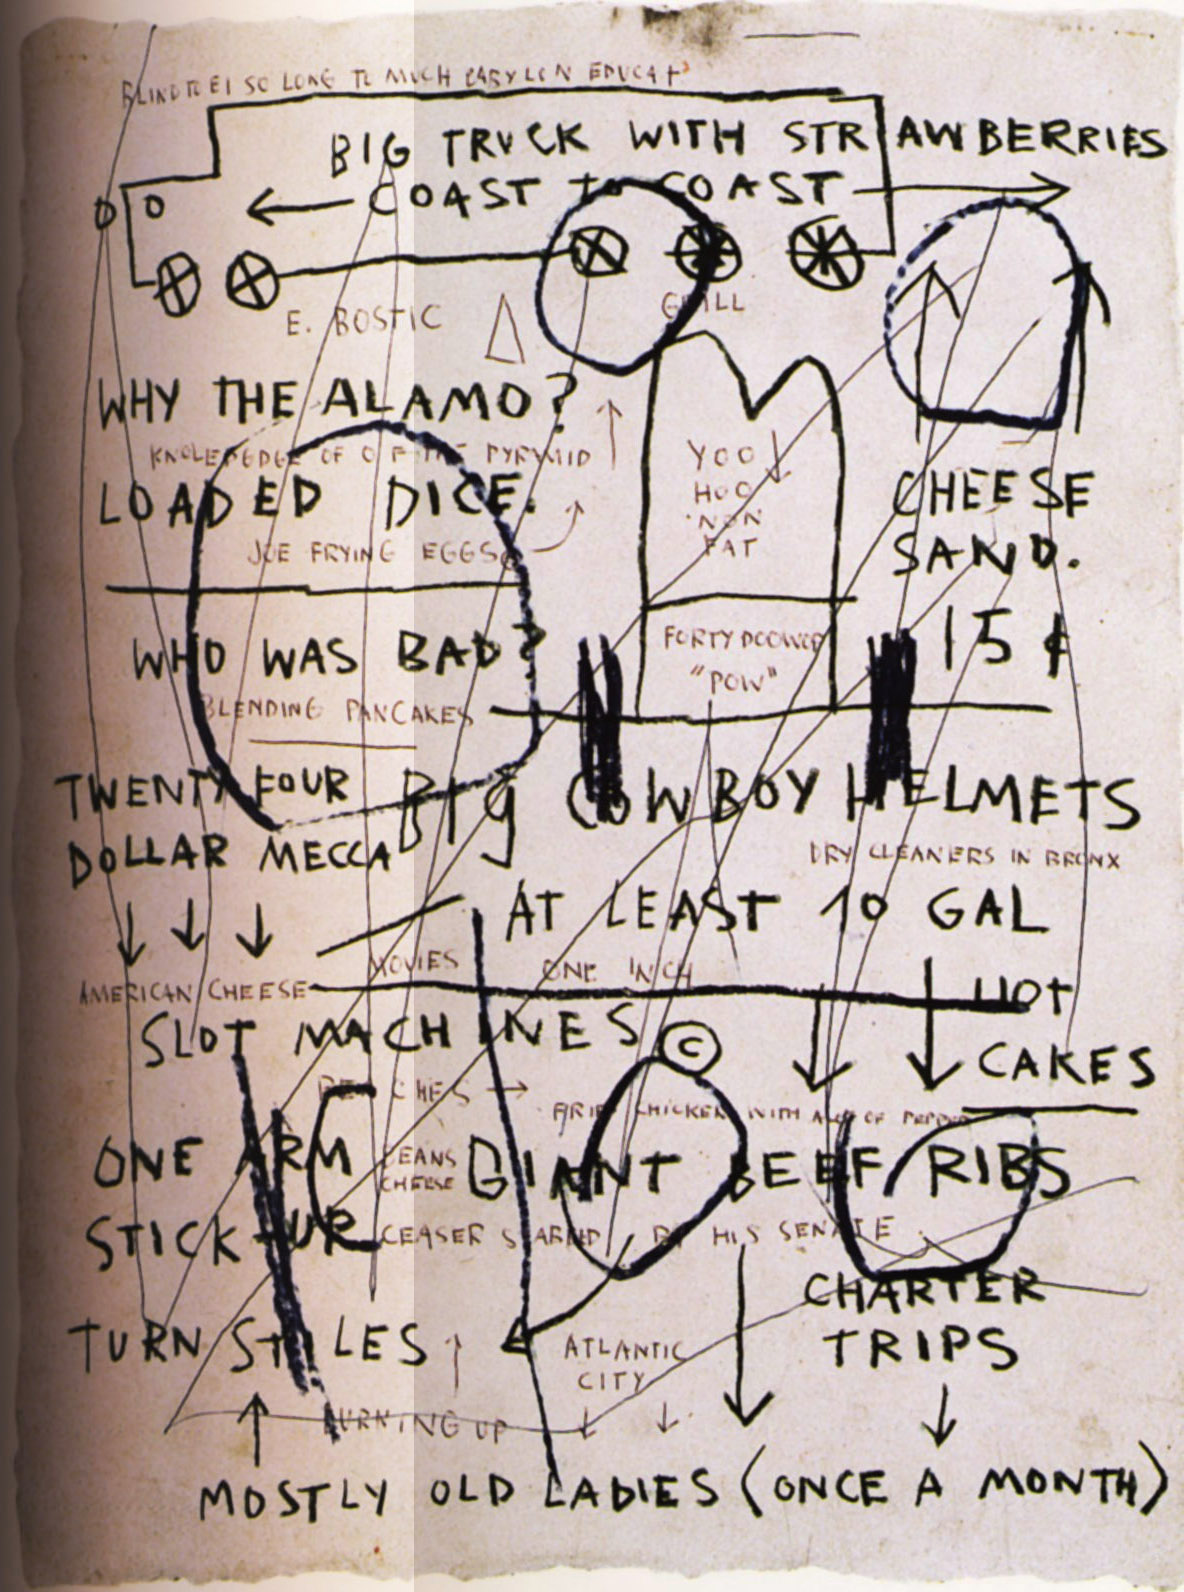 SO LONG TO MUCH BABYLON EDUCAT
BIG TRUCK WITH STRAWBERRIES
COAST to COAST
E. BOSTIC
GRILL
WHY THE ALAMO?
OF OF THE PYRAMID
YOO
HOO
NON
FAT
LOADED DICE.
CHEESE
SAND.
JOE FRYING EGGS
15 ¢
WHO WAS BAD?
FORTY
"POW"
BLENDING PANCAKES
TWENTY FOUR
DOLLAR MECCA
BIG COWBOY HELMETS
DRY CLEANERS IN BRONX
AT LEAST 10 GAL
MOVIES
ONE INCH
AMERICAN CHEESE
HOT
CAKES
SLOT MACHINES ©
CHICKEN WITH A LOT OF PEPPER
ONE ARM
STICK UP
BEANS
CHEESE
GIANT BEEF RIBS
CEASER STABBED BY HIS SENATE
CHARTER
TRIPS
TURN STILES
ATLANTIC
CITY
BURNING UP
MOSTLY OLD LADIES (ONCE A MONTH)